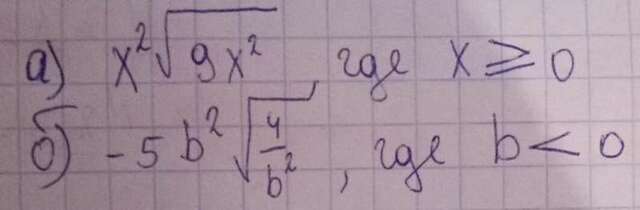 а) x²√(9x²), где x ⩾ 0
б) -5b²√(4/b²), где b < 0